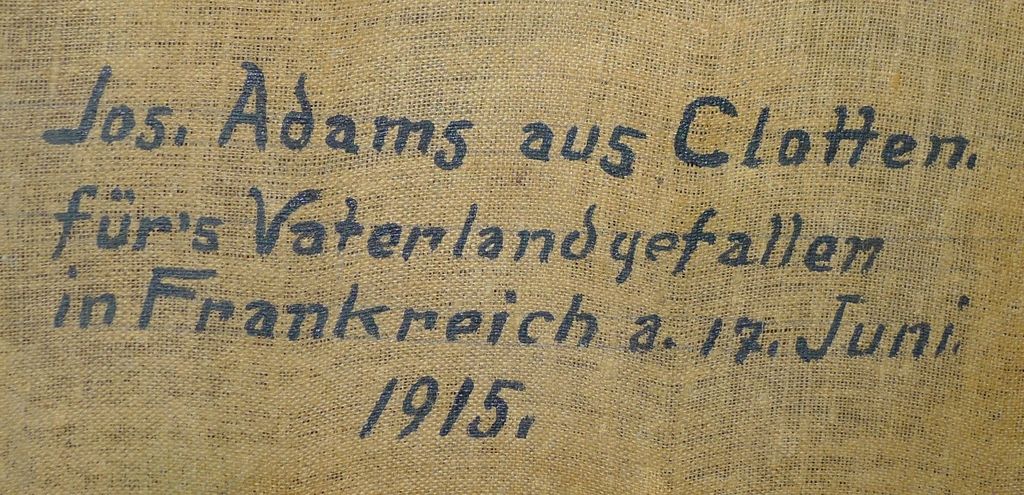 Jos. Adams aus Clotten.
für's Vaterland gefallen
in Frankreich a. 17. Juni.
1915.